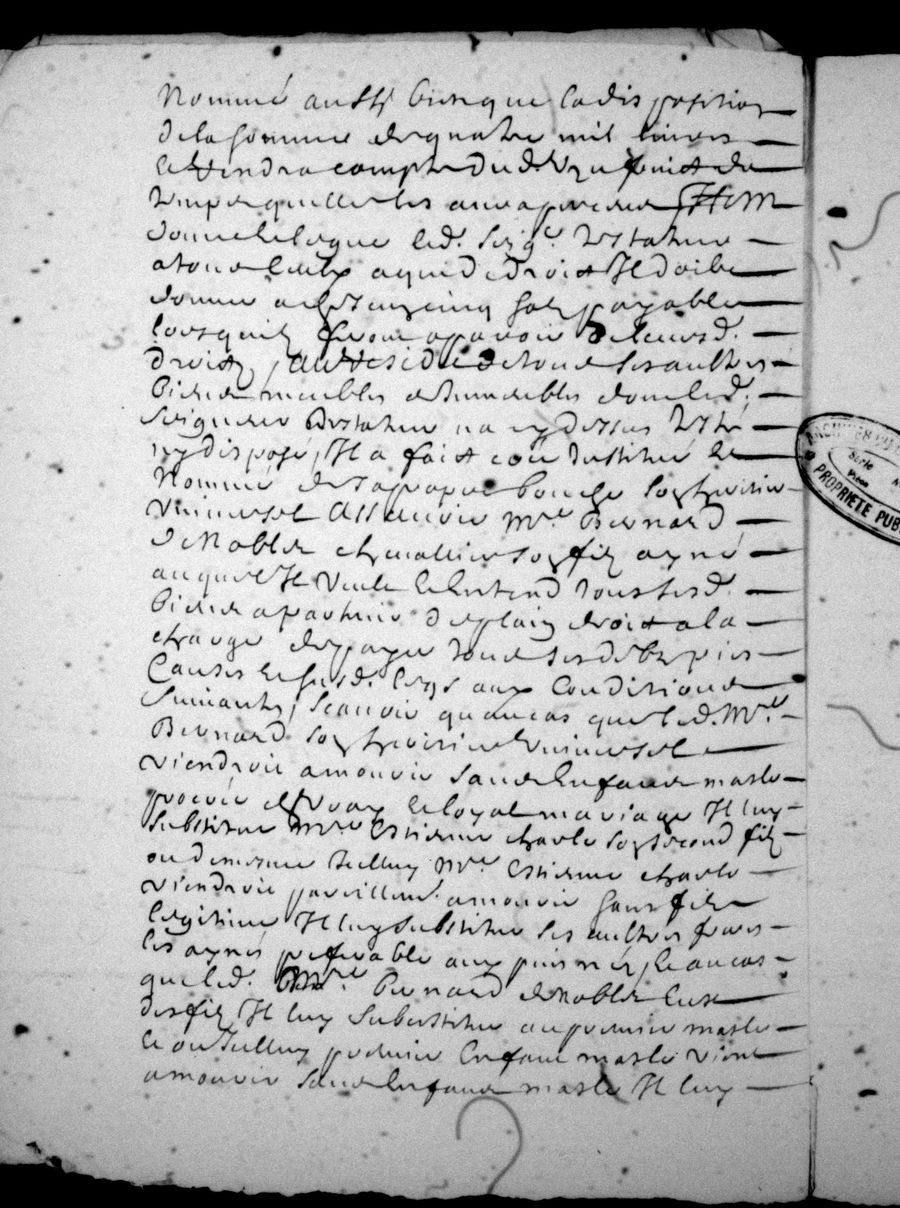 Nommé aussy bienque la disposition
de la somme de quatre mil livres
et rendra compte dud. uzufruict du
temps quelle les aura Item
donne et legue led. seigr. testateur
a tous ceulx a qui de droict Il doibt
donner cinq solz payable
lors quilz feront aparoir de leursd.
droictz, Au residu de tous ses aultres
biens meubles et immeubles dont led.
Seigneur Testateur na cy dessus testé
ny disposé, Il a faict et institué et
Nommé de sa propre bouche son heritier
Universel Assavoir Mre. Bernard
de Nobles chevallier son filz ayné
auquel Il veult et entend tous sesd.
biens apartenir de plain droict a la
charge de payer tous ses debtz pies
Causes et susd. legs aux Conditions
suivantes, scavoir quau cas que led. Mre.
Bernard son heritier universel
viendroit a mourir sans enfans masle
procréé de vray et loyal mariage Il luy
substitue Mre Estienne charle son second filz
ou Mre. Estienne charle
viendroit pareillemt. a mourir sans filz
legitime Il luy substitue ses aultres freres
les aynés preferable aux puis nés, et au cas
que led. Mre. Bernard de Nobles eust
des filz Il luy substitue au premier masle
et ou premier enfant masle vient
a mourir sans enfans masle Il luy
ARCHIVES
Série
Pièce
PROPRIETE PUB